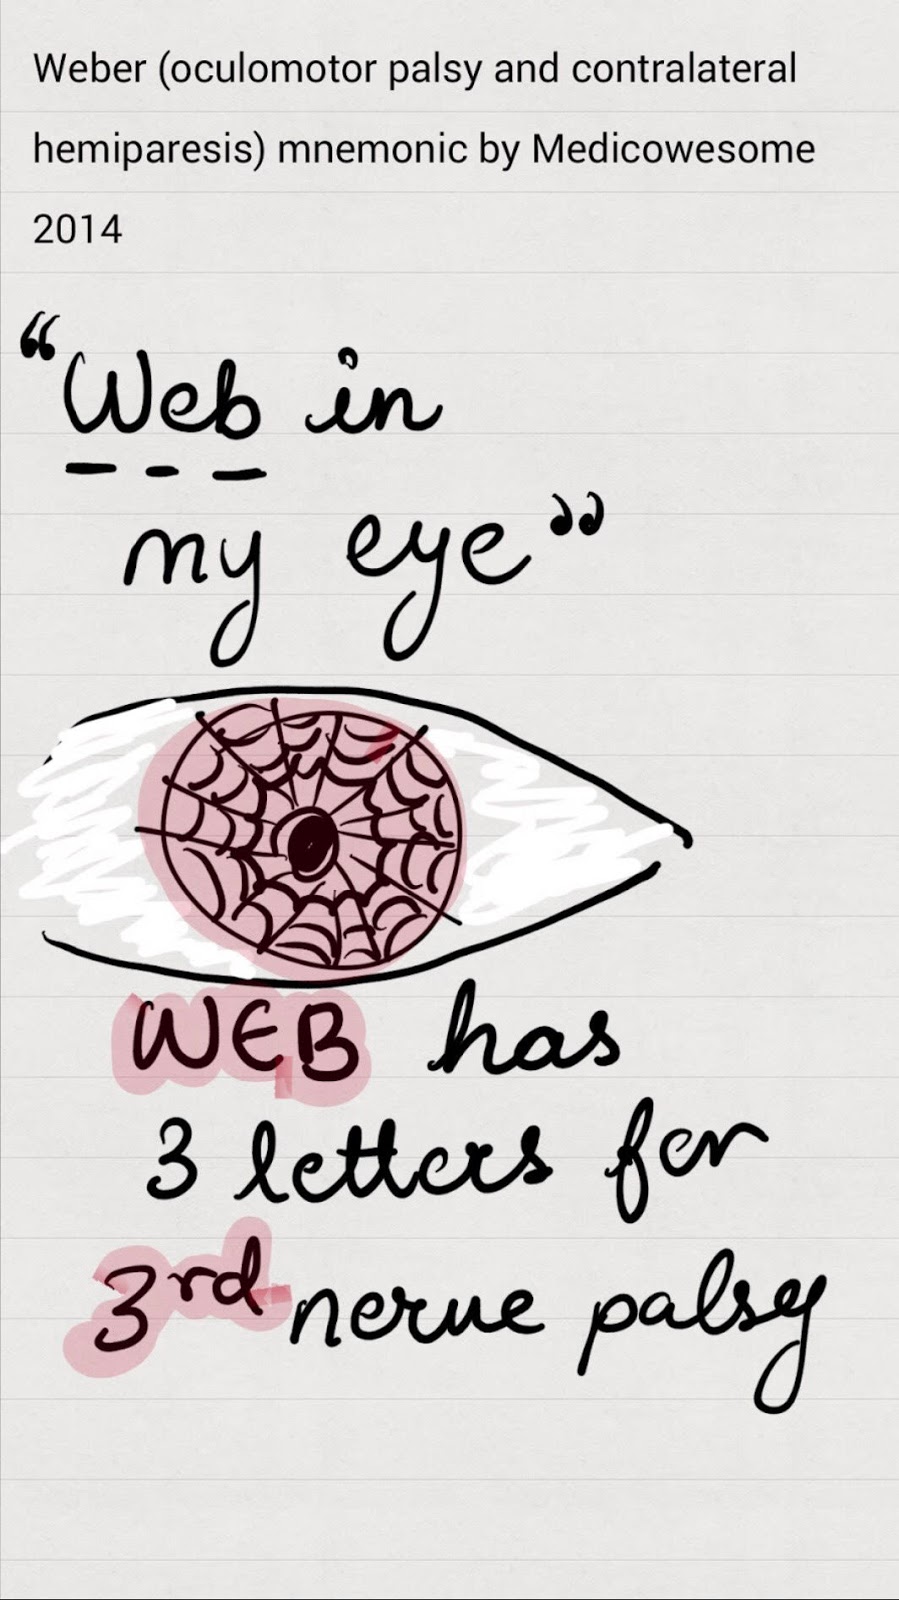 Weber (oculomotor palsy and contralateral
hemiparesis) mnemonic by Medicowesome
2014
“Web in
my eye”
WEB has
3 letters for
3rd nerve palsy